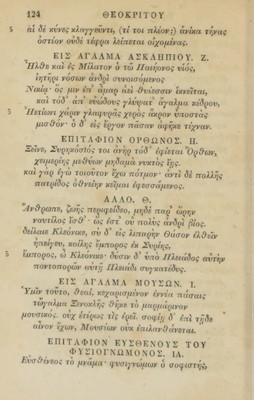 124 ΘΕΟΚΡΙΤΟΥ
5 αἱ δὲ κύνες κλαγγεῦντι, (τί τοι πλέον;) ἁνίκα τήνας
ὀστίον οὐδὲ τέφρα λείπεται οἰχομένας.
ΕΙΣ ΑΓΑΛΜΑ ΑΣΚΛΗΠΙΟΥ. Ζ.
Ἦλθε καὶ ἐς Μίλατον ὁ τῶ Παιήονος υἱός,
ἰητῆρι νόσων ἀνδρὶ συνοισόμενος
Νικίᾳ· ὅς μιν ἐπ᾽ ἆμαρ ἀεὶ θυέεσσιν ἱκνεῖται,
καὶ τόδ᾽ ἀπ᾽ εὐώδους γλύψατ᾽ ἄγαλμα κέδρου,
5 Ἠετίωνι χάριν γλαφυρᾶς χερὸς ἄκρον ὑποστὰς
μισθόν· ὁ δ᾽ εἰς ἔργον πᾶσαν ἀφῆκε τέχναν.
ΕΠΙΤΑΦΙΟΝ ΟΡΘΩΝΟΣ. Η.
Ξεῖνε, Συρηκόσιός τοι ἀνὴρ τόδ᾽ ἐφίεται Ὄρθων,
χειμερίης μεθύων μηδαμὰ νυκτὸς ἴῃς.
καὶ γὰρ ἐγὼ τοιοῦτον ἔχω πότμον· ἀντὶ δὲ πολλῆς
πατρίδος ὀθνείην κεῖμαι ἐφεσσάμενος.
ΑΛΛΟ. Θ.
Ἄνθρωπε, ζωῆς περιφείδεο, μηδὲ παρ᾽ ὥρην
ναυτίλος ἴσθ᾽· ὡς ἔστ᾽ οὐ πολὺς ἀνδρὶ βίος.
δείλαιε Κλεόνικε, σὺ δ᾽ εἰς λιπαρὴν Θάσον ἐλθεῖν
ἠπείγευ, κοίλης ἔμπορος ἐκ Συρίης,
5 ἔμπορος, ὦ Κλεόνικε· δύσιν δ᾽ ὑπὸ Πλειάδος αὐτὴν
ποντοπορῶν αὐτῇ Πλειάδι συγκατέδυς.
ΕΙΣ ΑΓΑΛΜΑ ΜΟΥΣΩΝ. Ι.
Ὑμῖν τοῦτο, θεαί, κεχαρισμένον ἐννέα πάσαις
τὤγαλμα Ξενοκλῆς θῆκε τὸ μαρμάρινον
μουσικός. οὐχ ἑτέρως τὶς ἐρεῖ. σοφίῃ δ᾽ ἐπὶ τῇδε
αἶνον ἔχων, Μουσέων οὐκ ἐπιλανθάνεται.
ΕΠΙΤΑΦΙΟΝ ΕΥΣΘΕΝΟΥΣ ΤΟΥ
ΦΥΣΙΟΓΝΩΜΟΝΟΣ. ΙΑ.
Εὐσθένεος τὸ μνᾶμα· φυσιγνώμων ὁ σοφιστής,